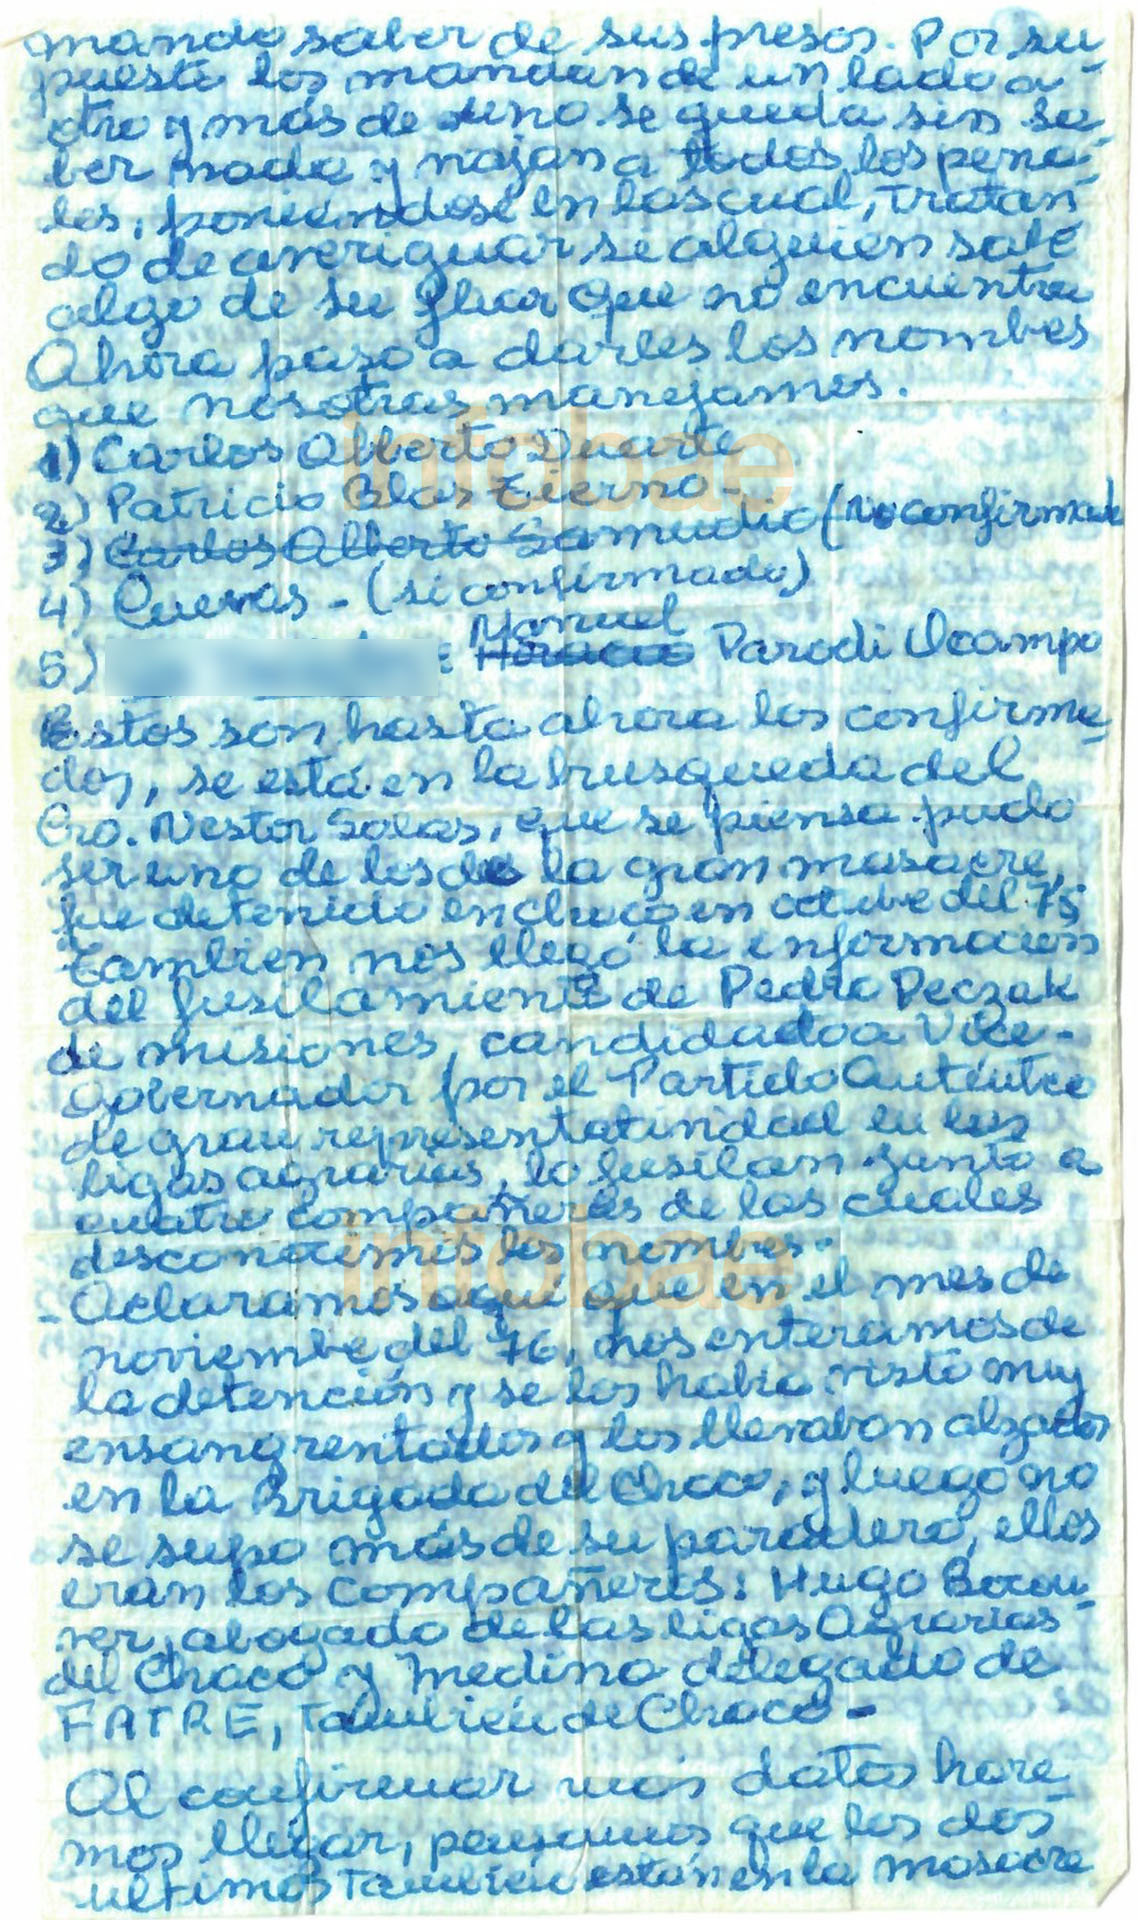 mando saber de sus presos. Por su-
puesto los mandan de un lado a
otro y más de uno se queda sin sa-
ber nada y viajan a todos los pena-
les, poniendose en las cual, tratan
do de averiguar si alguien sabe
algo de su fliar que no encuentra
Ahora paso a darles los nombres
que nosotras manejamos.
1) Carlos Alberto Duarte
2) Patricio Blas Tierno-
3) Carlos Alberto Samudio (No confirmado
4) Cuevas - (si confirmado)
Manuel
5) Parodi Ocampo
Estos son hasta ahora los confirma-
dos, se está en la busqueda del
Cro. Nestor Salas, que se piensa pudo
ser uno de los de la gran masacre,
fue detenido en chaco en octubre del 75
Tambien nos llegó la información
del fusilamiento de Pedro Peczak
de misiones, candidado a Vice-
gobernador por el Partido Auténtico
de gran representatividad en las
ligas agrarias, lo fusilan junto a
cuatro compañeros de los cuales
desconocemos los nombres-
- Aclaramos aquí que en el mes de
noviembre del 76, nos enteramos de
la detención y se los había visto muy
ensangrentados y los llevaban alzados
en la Brigada del Chaco, y luego no
se supo más de su paradero, ellos
eran los compañeros: Hugo Bocou-
ver, abogado de las ligas Agrarias
del Chaco y Medina delegado de
FATRE, También de Chaco -
Al confirmar más datos hare-
mos llegar, pensamos que los dos
ultimos También están en la masacre
infobae
infobae